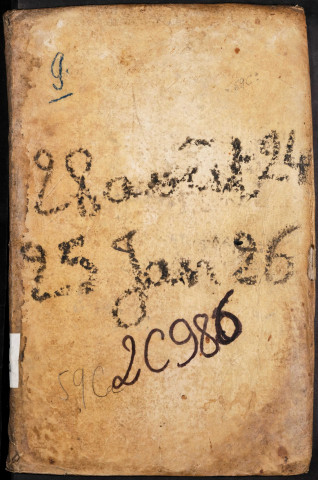 9.
28 août 24
25 Jan 26
2C986
59C